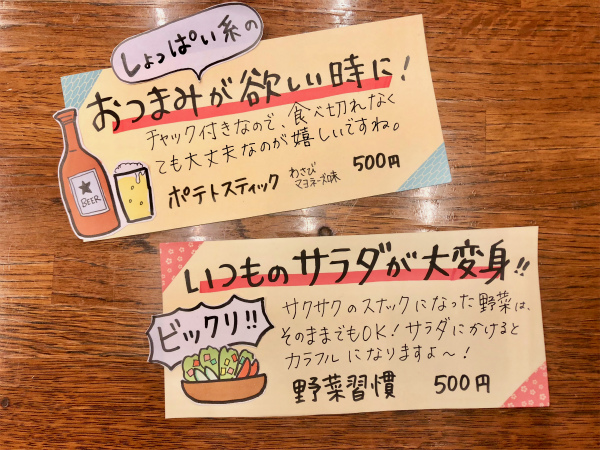 しょっぱい系の
おつまみが欲しい時に!
チャック付きなので、食べ切れなく
ても大丈夫なのが嬉しいですね。
ポテトスティック わさびマヨネーズ味 500円
BEER
いつものサラダが大変身!!
ビックリ!!
サクサクのスナックになった野菜は、
そのままでもOK!サラダにかけると
カラフルになりますよ〜!
野菜習慣 500円